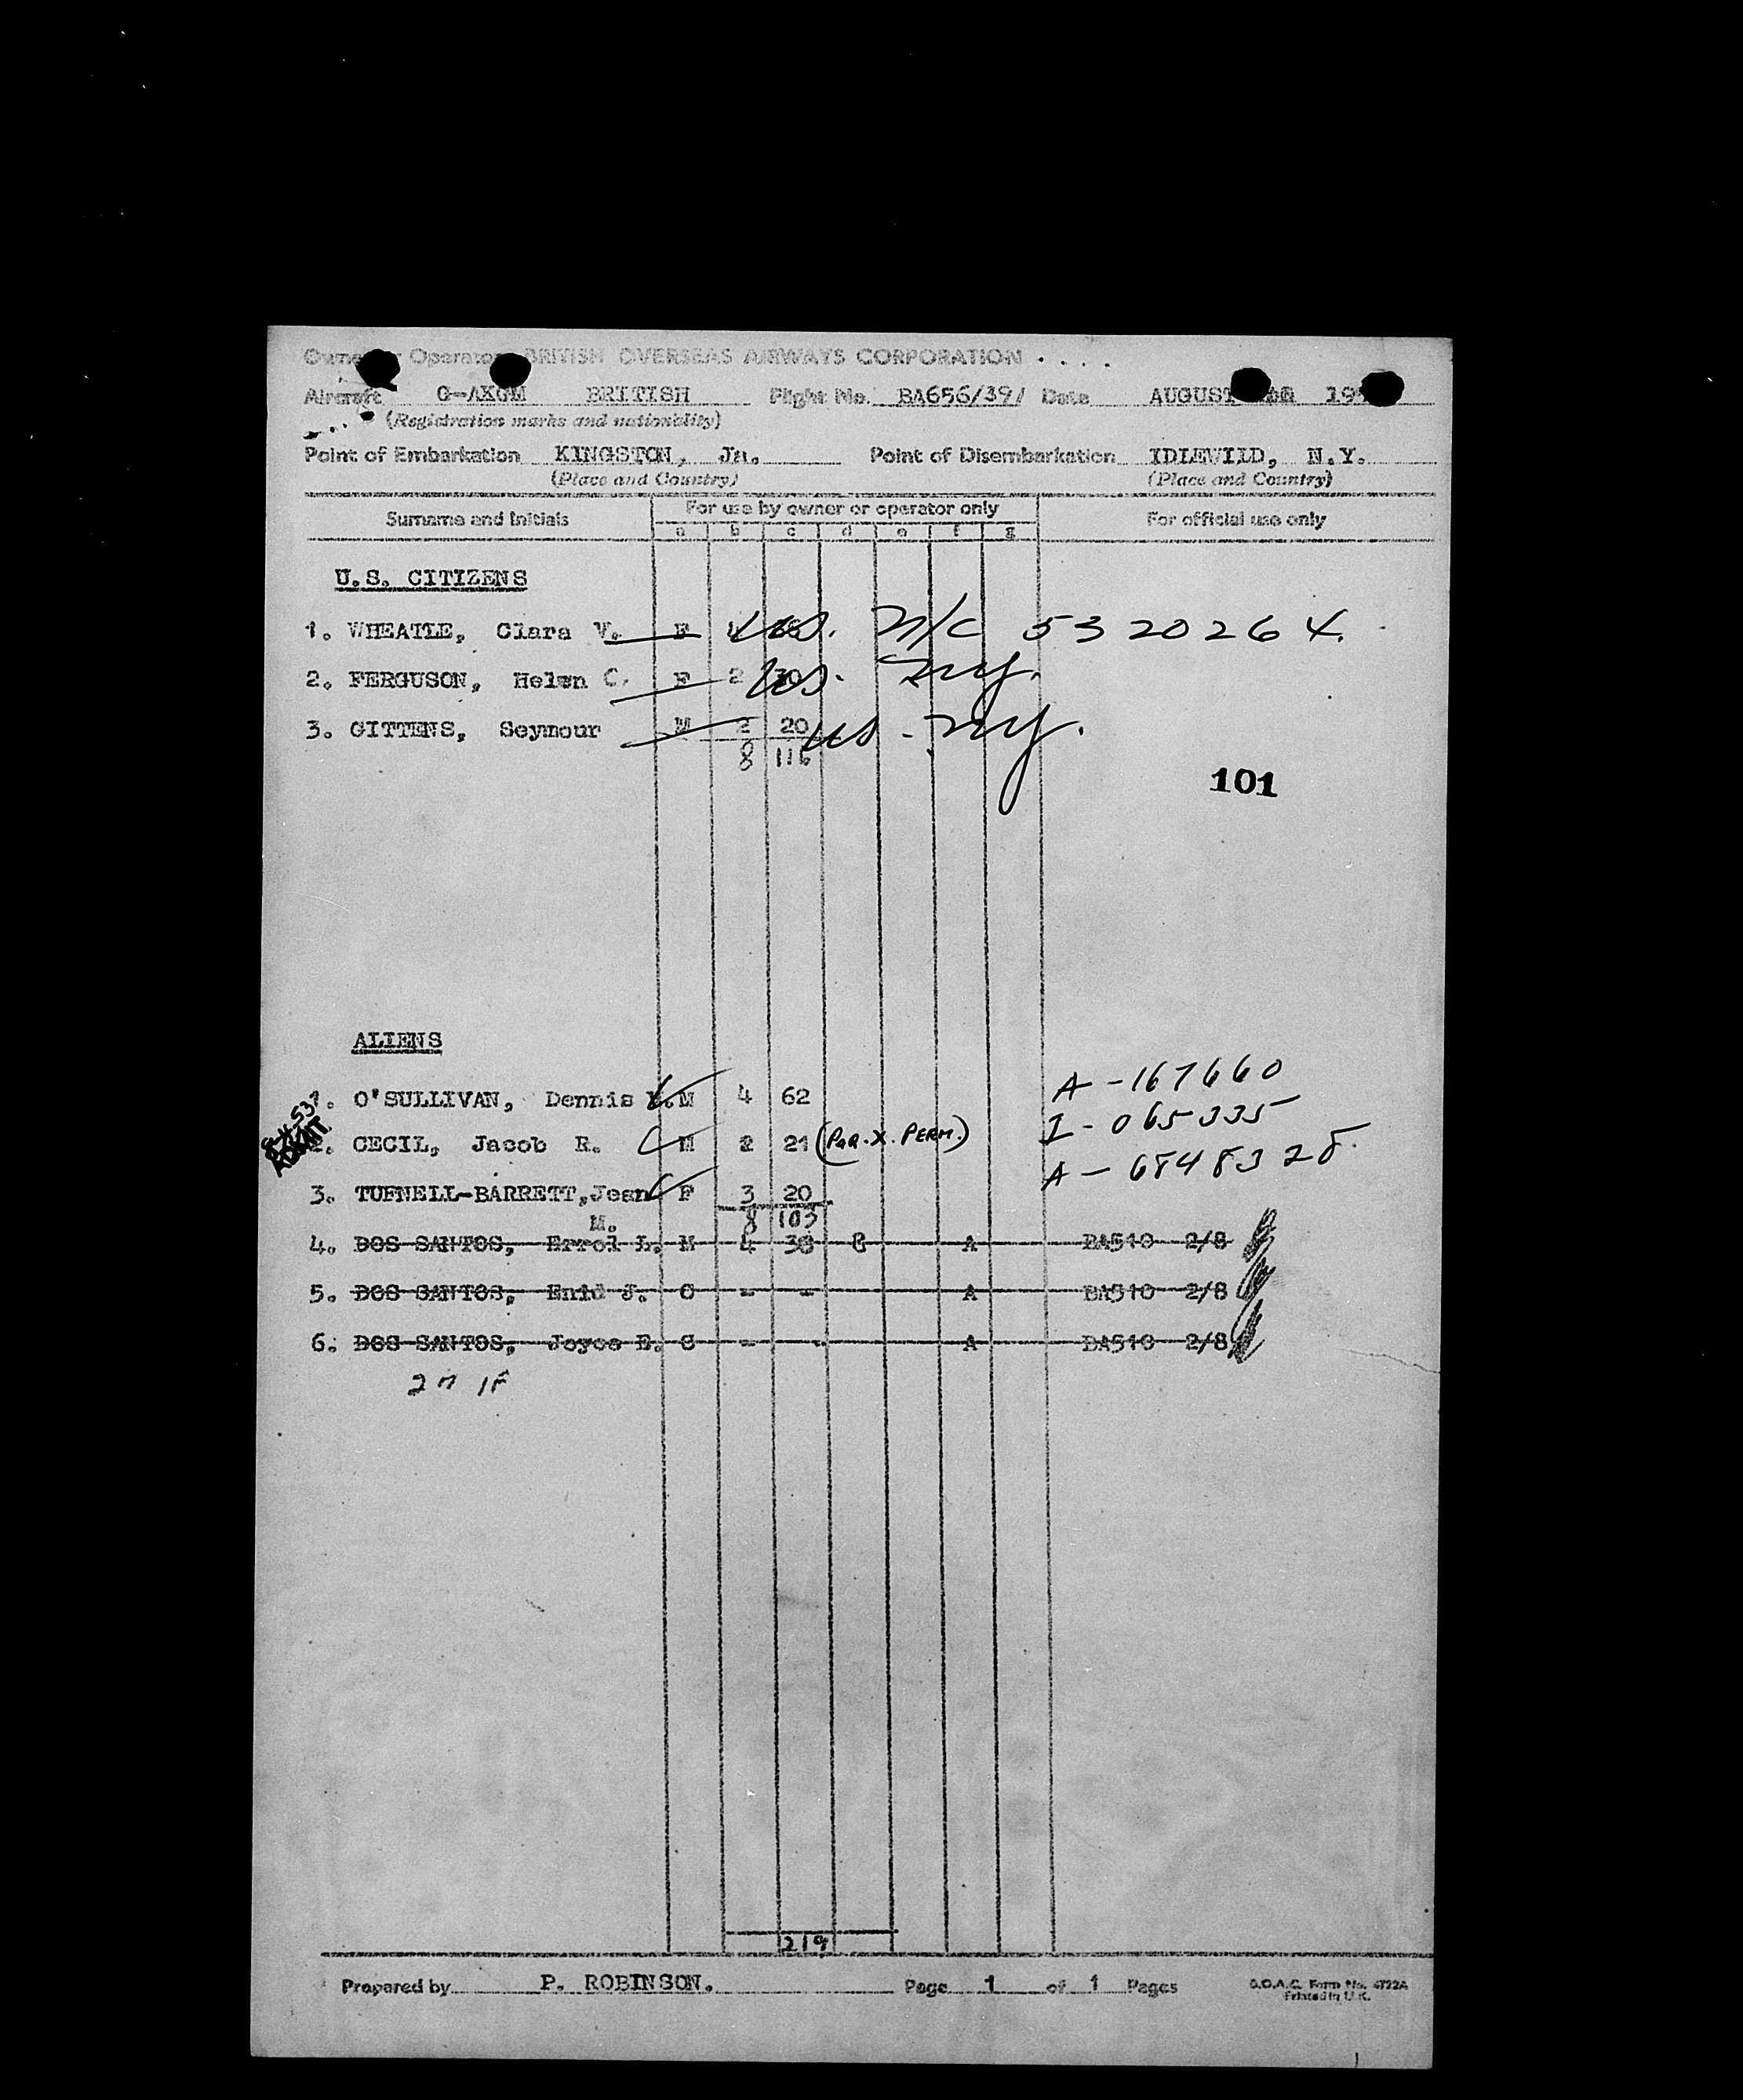 Owner or Operator BRITISH OVERSEAS AIRWAYS CORPORATION
Aircraft G-AKGM BRITISH Flight No. BA656/391 Date AUGUST 19
(Registration marks and nationality)
Point of Embarkation KINGSTON, Ja. Point of Disembarkation IDLEWILD, N.Y.
(Place and Country) (Place and Country)
Surname and Initials For use by owner or operator only For official use only
a b c d e f g
U.S. CITIZENS
1. WHEATLE, Clara V. F us. N/C 5320264.
2. FERGUSON, Helen C. F 2 30 us. ny.
3. GITTENS, Seymour M 2 20 us. ny.
8 116
101
ALIENS
A-167660
1. O'SULLIVAN, Dennis M 4 62
I-065335
8-4-53
ADMIT.
2. CECIL, Jacob R. M 2 21 (PAR. X. PERM.)
A-6848328.
3. TUFNELL-BARRETT, Jean F 3 20
M. 8 103
4. DOS SANTOS, Errol L. M 4 38 C A BA510 2/8
5. DOS SANTOS, Enid J. C - - A BA510 2/8
6. DOS SANTOS, Joyce E. C - - A BA510 2/8
2M 1F
219
Prepared by P. ROBINSON. Page 1 of 1 Pages B.O.A.C. Form No. 4722A
Printed in U.K.